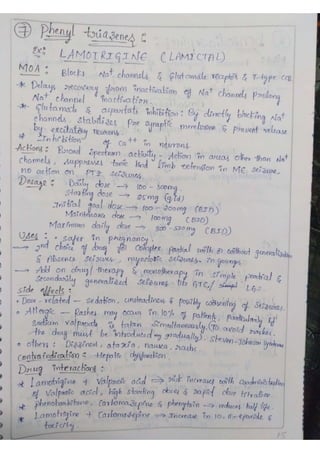 ⑦ Phenyl triazenes :
Ex: LAMOTRIGINE (LAMICTAL)
MOA : Blocks Na+ channels & Glutamate receptor & T-type CCB
* Delays recovery from inactivation of Na+ channels prolong
Na+ channel inactivation.
* Glutamate & aspartate inhibition: By directly blocking Na+
channels stabilizes pre synaptic membrane & prevent release
by excitatory neurons.
* Inhibition of Ca++ in neurons
Actions : Broad spectrum activity - Action in areas other than Na+
channels, suppresses tonic hind limb extension in ME seizure.
no action on PTZ seizures.
Dosage : Daily dose → 100 - 500mg
Starting dose → 25mg
Initial goal dose → 100 - 200mg (BID)
Maintenance dose → 100mg (BID)
Maximum daily dose → 500mg (BID)
Uses : • Safer in pregnancy.
→ 2nd choice of drug for complex partial with or without generalization
& Absence seizures, myoclonic seizures in young
→ Add on drug/ therapy & monotherapy in simple partial &
Secondarily generalized seizures GTC/ LGS
Side effects :
• Dose - related - sedation, unsteadiness & possibly worsening of seizures.
• Allergic - Rashes may occur in 10% of patients, particularly if
sodium valproate is taken simultaneously (To avoid rashes,
the drug must be introduced gradually). Steven-Johnson syndrome
• Others : Dizziness, ataxia, nausea, rashes.
Contraindication : Hepatic dysfunction.
Drug interactions :
* Lamotrigine + Valproic acid → risk increase with
of Valproic acid, high starting dose & rapid dose titration.
* Phenobarbitone, Carbamazepine & phenytoin → reduces half life.
* Lamotrigine + Carbamazepine → Increase in 10, 11-epoxide &
toxicity
15